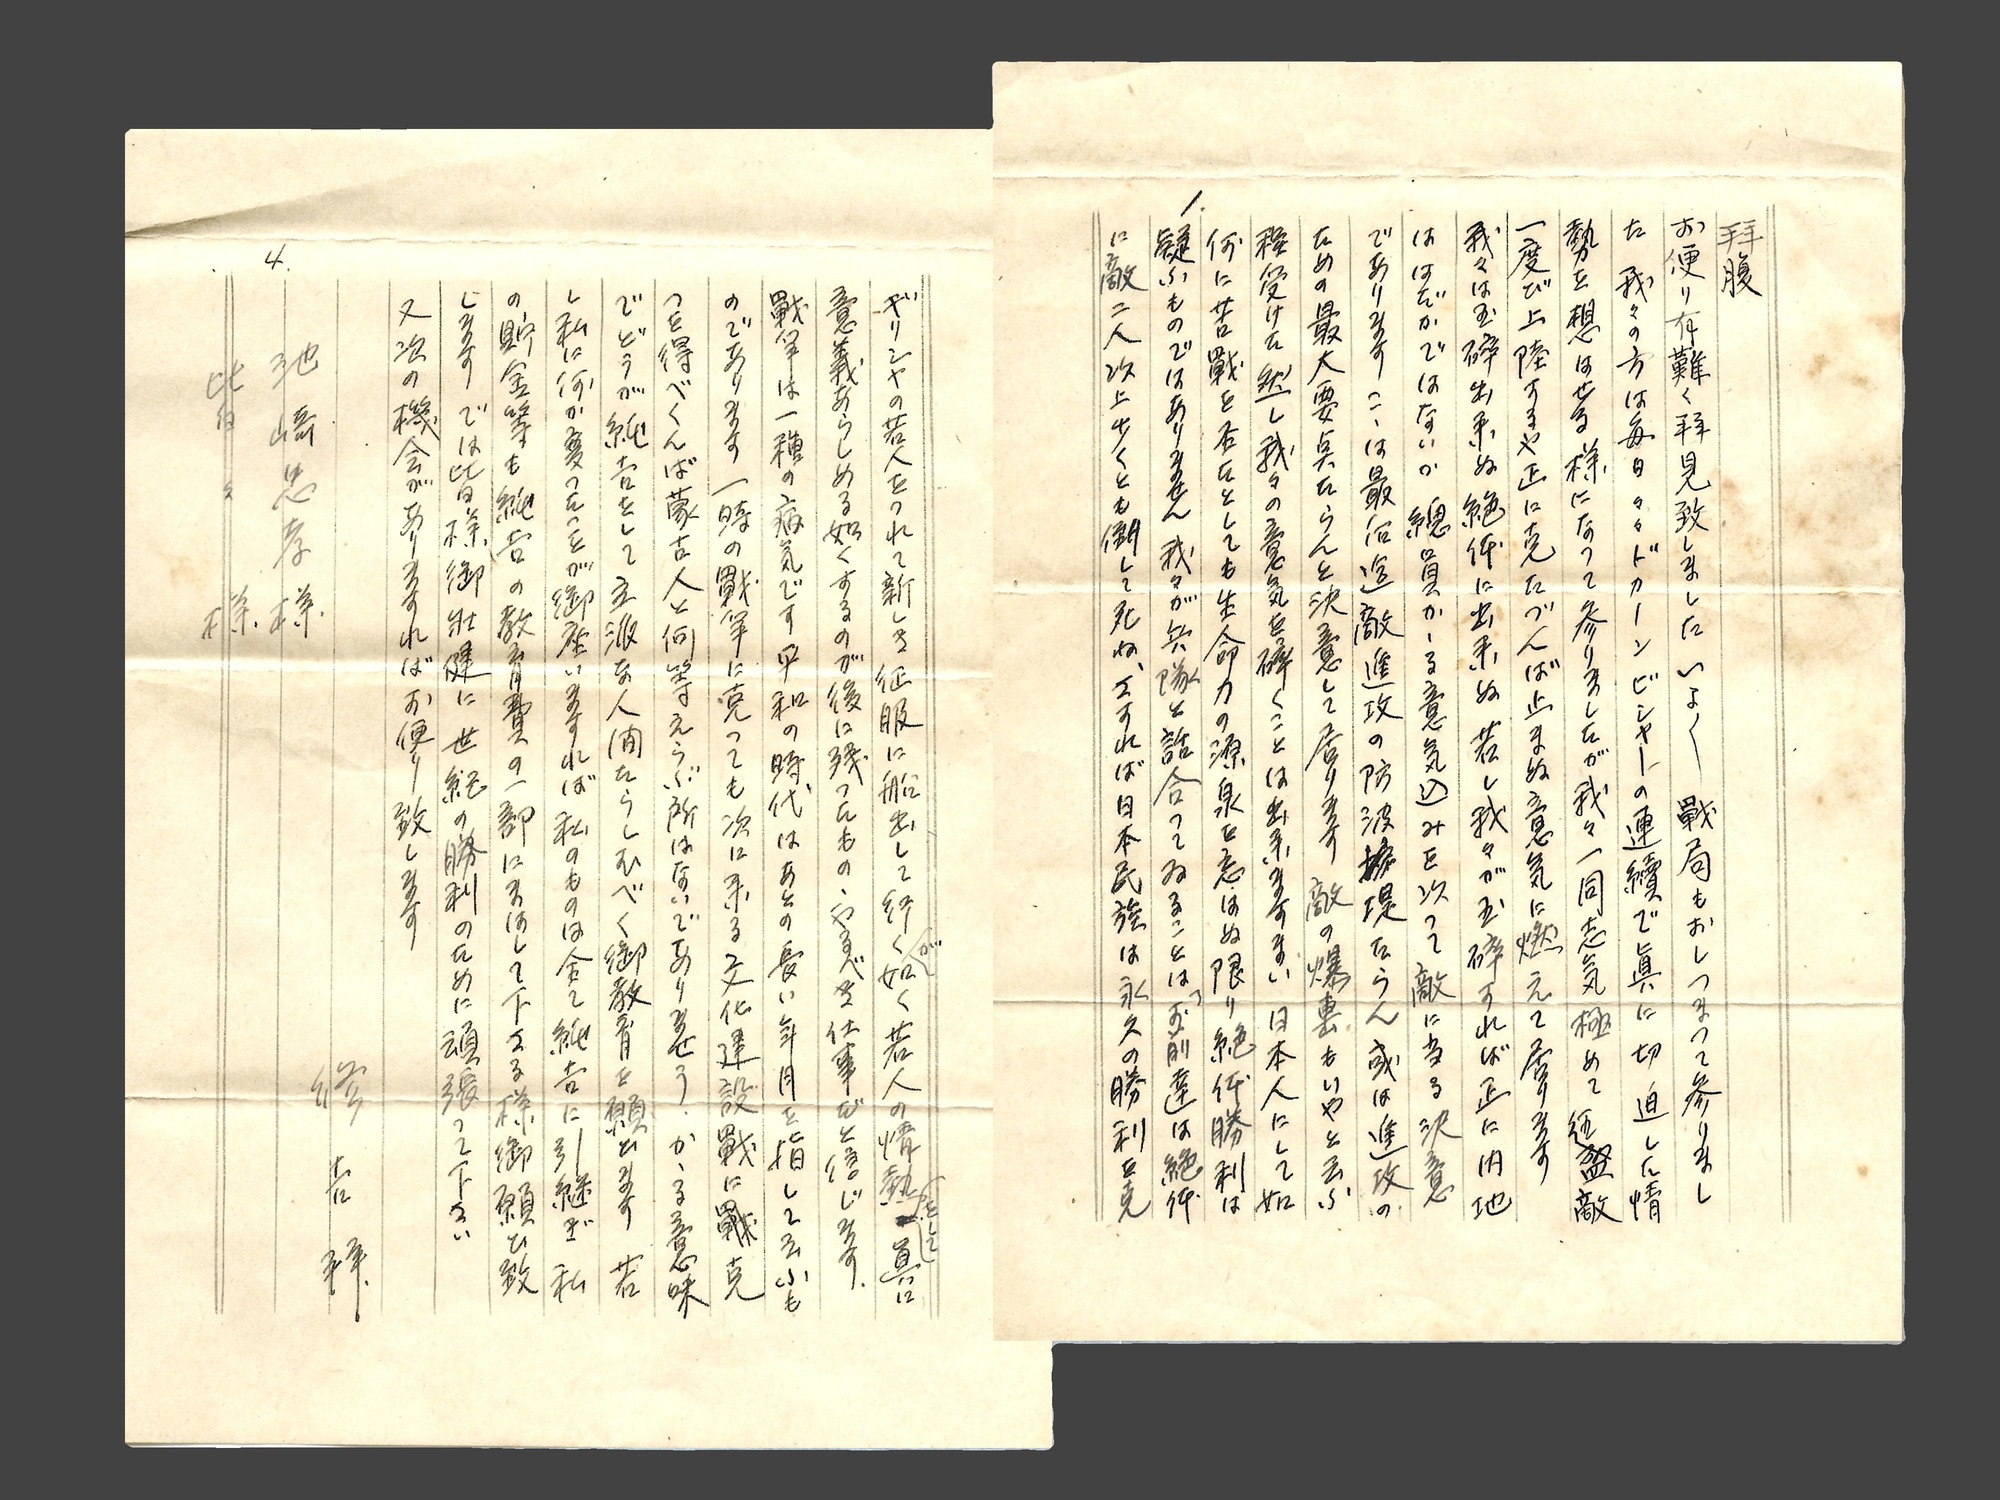 1.
拝腹
お便り有難く拝見致しました いよ〱 戰局もおしつまって参りまし
た 我々の方は毎日々々ドカーンビシャーの連續で眞に切迫した情
勢を想はせる様になって参りましたが我々一同志気極めて旺盛敵
一度び上陸するや正に克たづんば止まぬ意気に燃えて居ります
我々は玉碎出来ぬ絶体に出来ぬ 若し我々が玉碎すれば正に内地
ははだかではないか 總員かゝる意気込みを以って敵に当る決意
であります こゝは最后迄敵進攻の防波堤たらん或は進攻の
ための最大要点たらんと決意して居ります 敵の爆裏もいやと云ふ
程受けた 然し我々の意気を碎くことは出来ますまい 日本人にして如
何に苦戰を否たとしても生命力の源泉を忘はぬ限り絶体勝利は
疑ふものではありません 我々が兵隊と話合ってゐることは「お前達は絶体
に敵二人以上少くとも倒して死ね、さすれば日本民族は永久の勝利を克
4.
ギリシヤの若人をつれて新しき征服に船出して行くが如く若人の情熱をして眞に
意義あらしめる如くするのが後に残ったものゝやるべき仕事だと信じます.
戰爭は一種の病気です 平和の時代はあとの長い年月を指して云ふも
のであります 一時の戰爭に克っても次に来る文化建設戰に戰克
つを得べくんば蒙古人と何等えらぶ所はないでありませう. かゝる意味
でどうか純吉をして立派な人間たらしむべく御教育を願ひます 若
し私に何か变ったことが御座いますれば私のものは全て純吉に引継ぎ 私
の貯金等も純吉の教育費の一部にまはして下さる様御願ひ致
します では皆様御壮健に 世紀の勝利のために頑張って下さい
又次の機会がありますればお便り致します
修吉拝.
池﨑忠孝様
皆々様